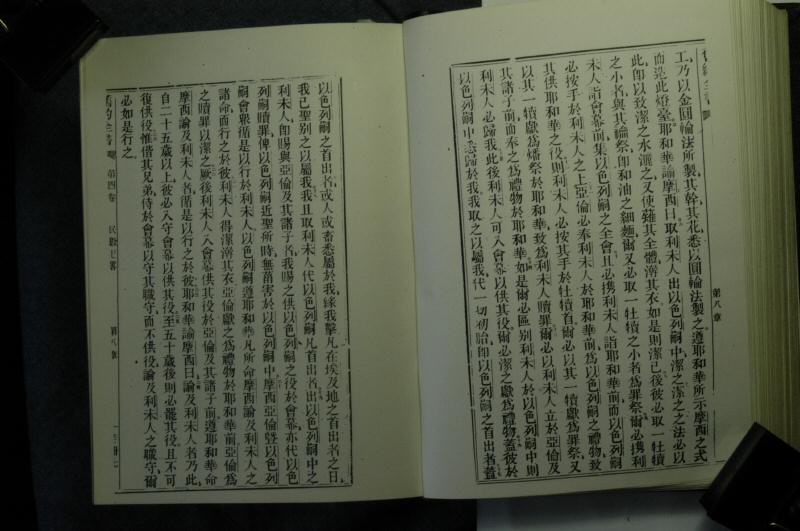 工乃以金圓輪法所製其幹其花悉以圓輪法製之遵耶和華所示摩西之式
而造此燈臺耶和華諭摩西曰取利未人出以色列嗣中潔之潔之之法必以
此卽以致潔之水灑之又使薙其全體澣其衣如是則潔已後彼必取一牡犢
之小者與其論祭卽和油之細麵爾又必取一牡犢之小者為罪祭爾必携利
未人詣會幕前集以色列嗣之全會且必携利未人詣耶和華前而以色列嗣
必按手於利未人之上亞倫必奉利未人於耶和華前為以色列嗣之禮物致
其供耶和華之役則利未人必按其手於牡犢首爾必以其一犢獻為罪祭又
以其一犢獻為燔祭於耶和華致為利未人贖罪爾必以利未人立於亞倫及
其諸子前而奉之為禮物於耶和華如是爾必區别利未人於以色列嗣中則
利未人必歸我此後利未人可入會幕以供其役爾必潔之獻為禮物蓋彼於
以色列嗣中悉歸於我我取之以屬我代一切初胎卽以色列嗣之首出者蓋
第八章
以色列嗣之首出者或人或畜悉屬於我緣我擊凡在埃及地之首出者之日
我已聖别之以屬我我且取利未人代以色列嗣凡首出者出以色列嗣中之
利未人卽賜與亞倫及其諸子者我賜之供以色列嗣之役於會幕亦代以色
列嗣贖罪俾以色列嗣近聖所時無菑害於以色列嗣中摩西亞倫曁以色列
嗣會衆循是以行於利未人以色列嗣遵耶和華凡所命摩西諭及利未人之
諸命而行之於彼利未人得潔澣其衣亞倫獻之為禮物於耶和華前亞倫為
之贖罪以潔之厥後利未人入會幕供其役於亞倫及其諸子前遵耶和華命
摩西諭及利未人者循是以行之於彼耶和華諭摩西曰諭及利未人者乃此
自二十五歲以上彼必入守會幕以供其役至五十歲後則必罷其役且不可
復供役惟偕其兄弟侍於會幕以守其職守而不供役諭及利未人之職守爾
必如是行之
舊約全書 第四卷 民數 第八章